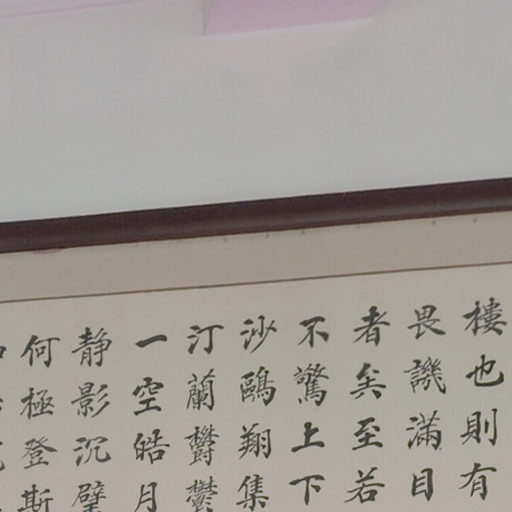 樓也則有
畏譏滿目
者矣至若
不驚上下
沙鷗翔集
汀蘭欝欝
一空皓月
静影沉璧
何極登斯